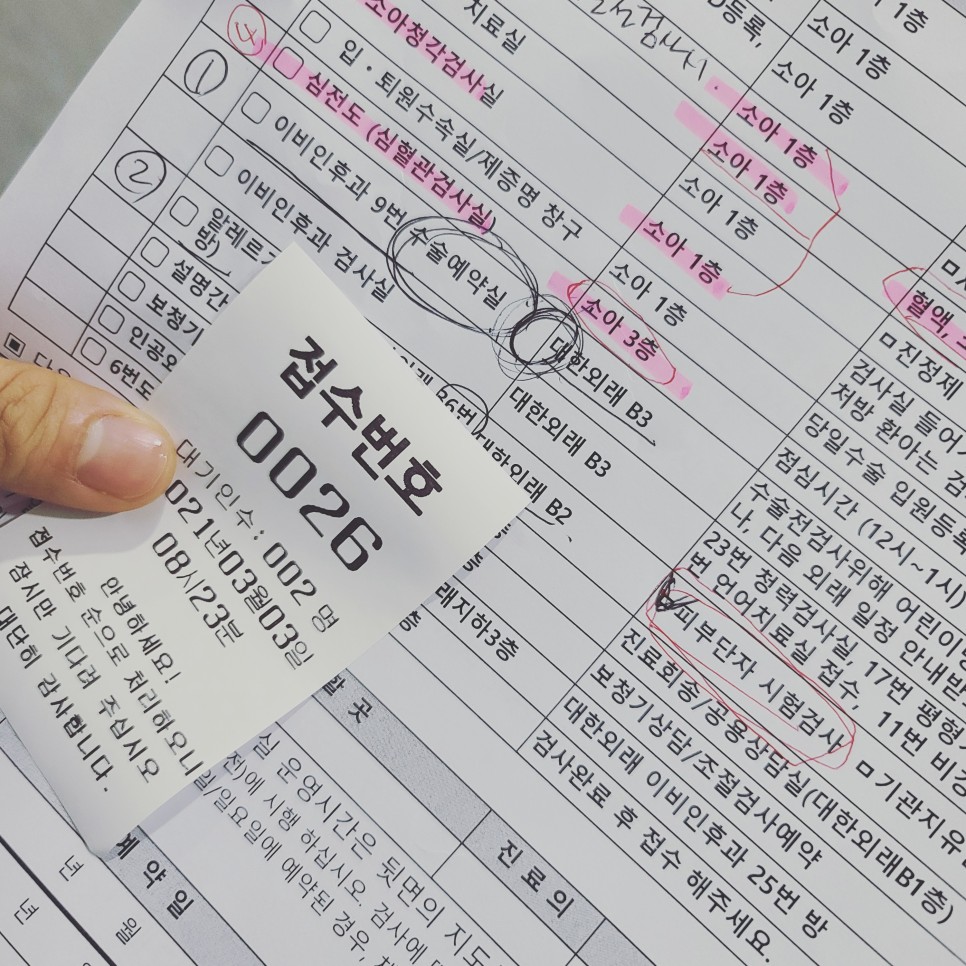 소아청각검사실
치료실
입·퇴원수속실/제증명 창구
심전도 (심혈관검사실)
이비인후과 9번 수술예약실
이비인후과 검사실
설명간
보청기
인공와
6번도
4
1
2
D등록,
소아 1층
소아 1층
소아 1층
소아 1층
소아 1층
소아 1층
소아 1층
소아 1층
소아 3층
대한외래 B3
대한외래 B3
대한외래 B2
래지하3층
접수번호
0026
대기인수 : 002 명
021년03월03일
08시23분
안녕하세요!
접수번호 순으로 처리하오니
잠시만 기다려 주십시오
대단히 감사합니다.
혈액,
□진정제
검사실 들어
처방 환아는 검
당일수술 입원등록
점심시간 (12시~1시)
수술전검사위해 어린이
나, 다음 외래 일정 안내받
23번 청력검사실, 17번 평형
번 언어치료실 접수, 11번 비강
피부단자 시험검사 □기관지유
진료회송/공용상담실(대한외래B1층)
보청기상담/조절검사예약
대한외래 이비인후과 25번 방
검사완료 후 접수 해주세요.
할 곳
실 운영시간은 뒷면의 지도
전)에 시행 하십시오. 검사에
일/일요일에 예약된 경우,
진 료 의
예 약 일
년
월
년